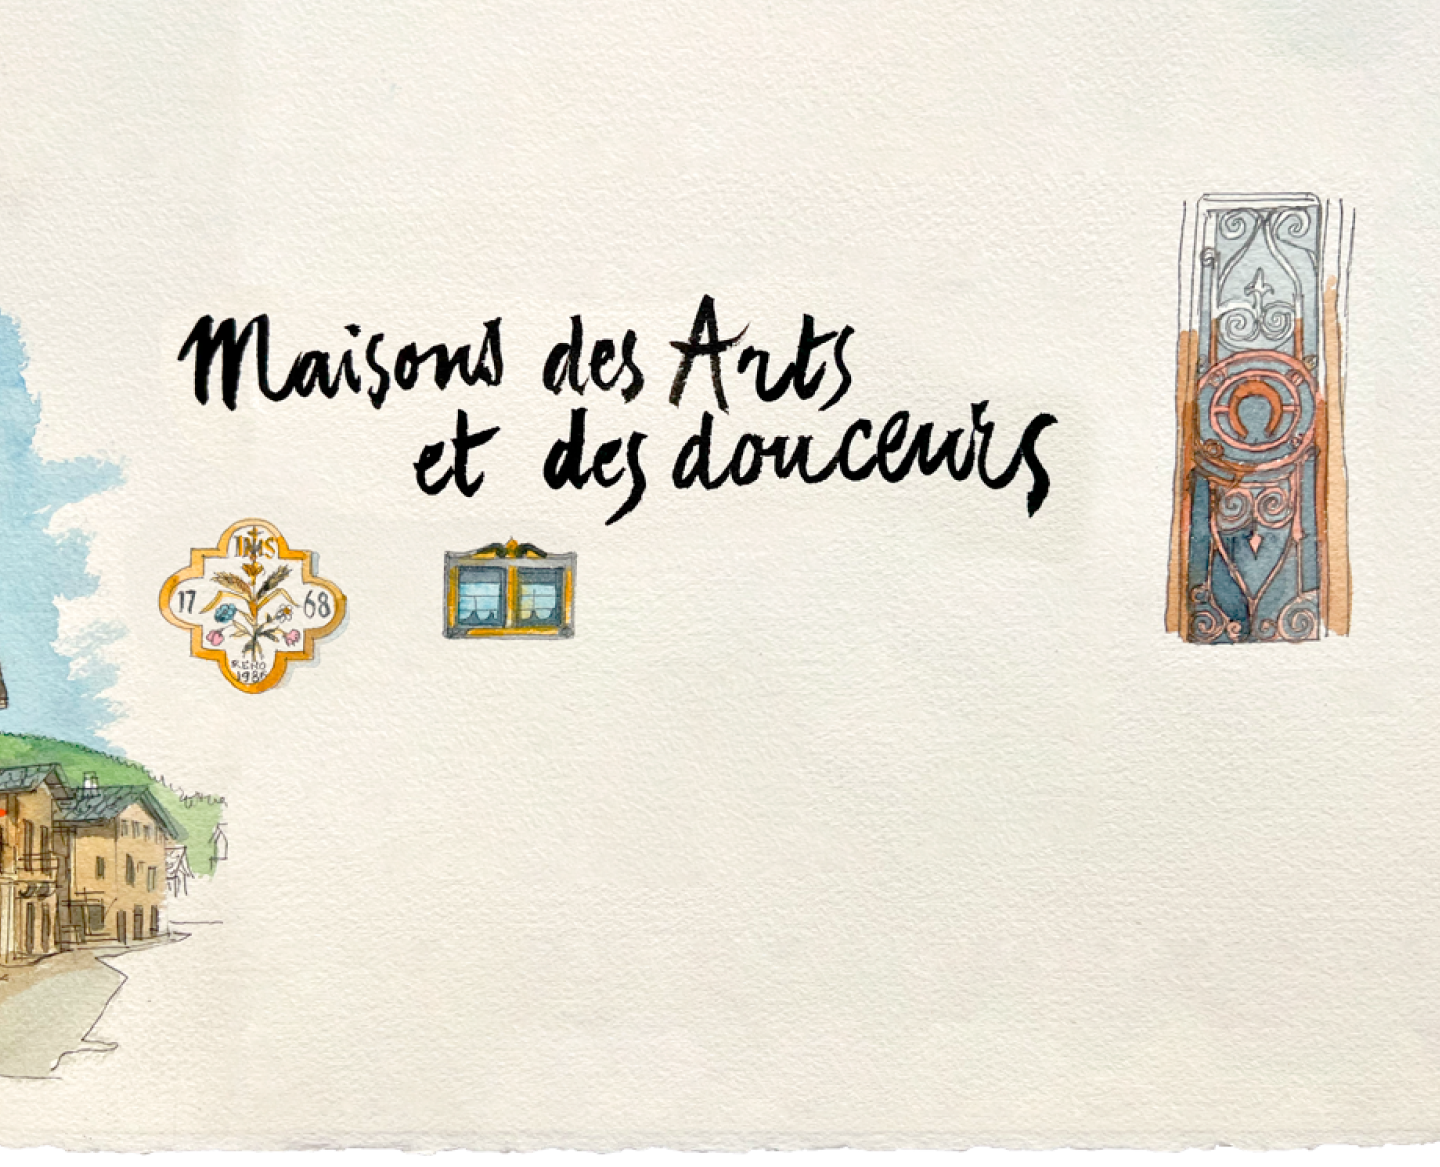 Maisons des Arts
et des douceurs
IHS
17 68
RENO
1986